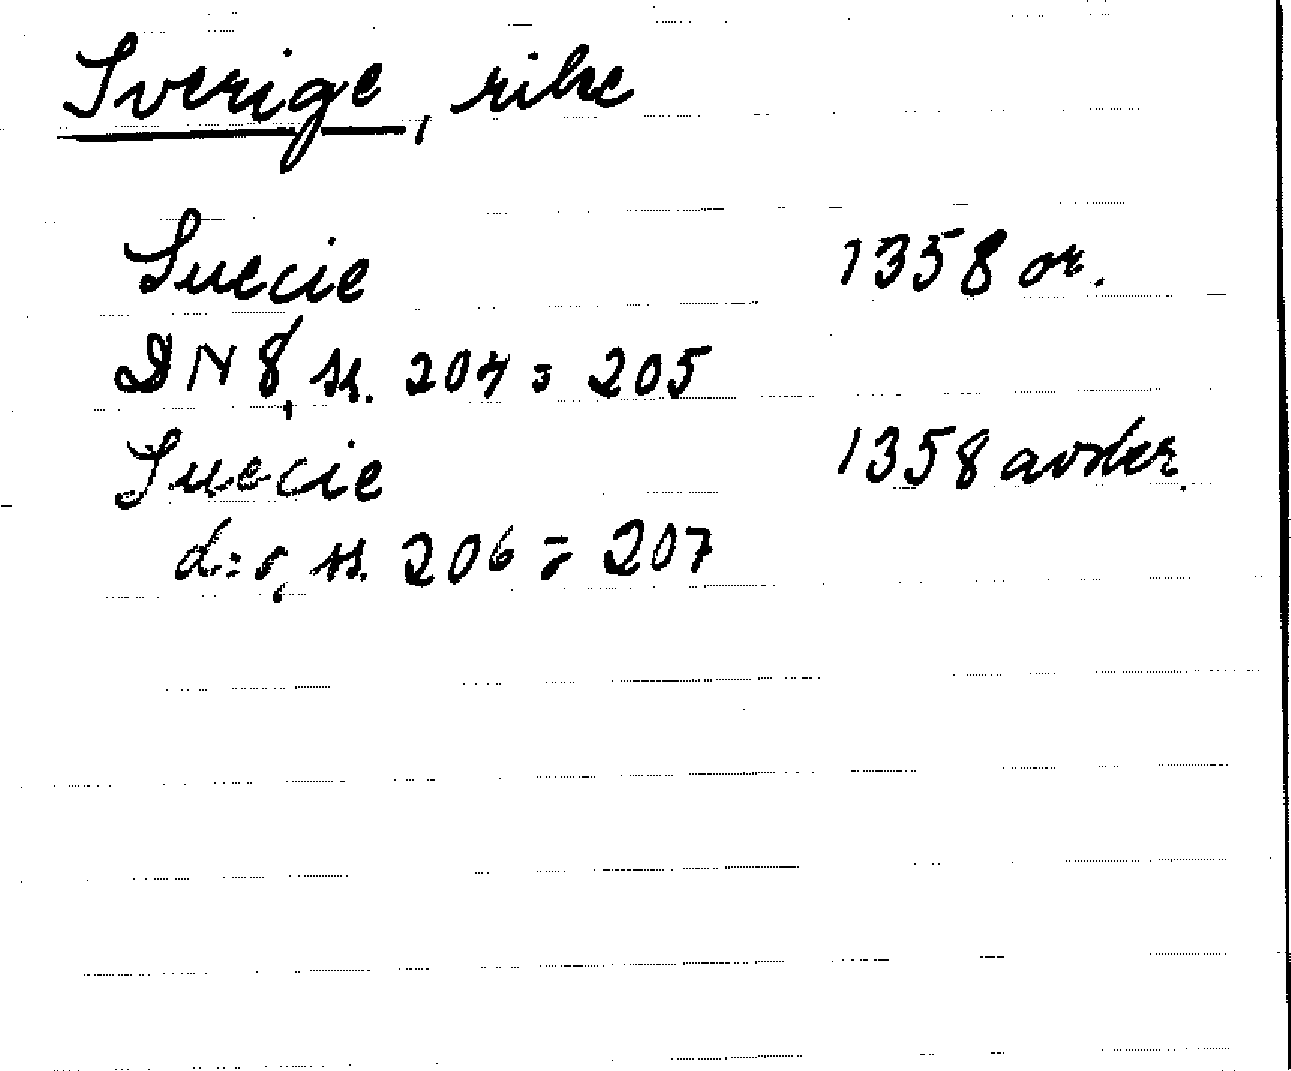 Sverige, rike
Suecie 1358 or.
DN 8, ss. 204 = 205
Suecie 1358 avskr.
d:o, ss. 206 = 207